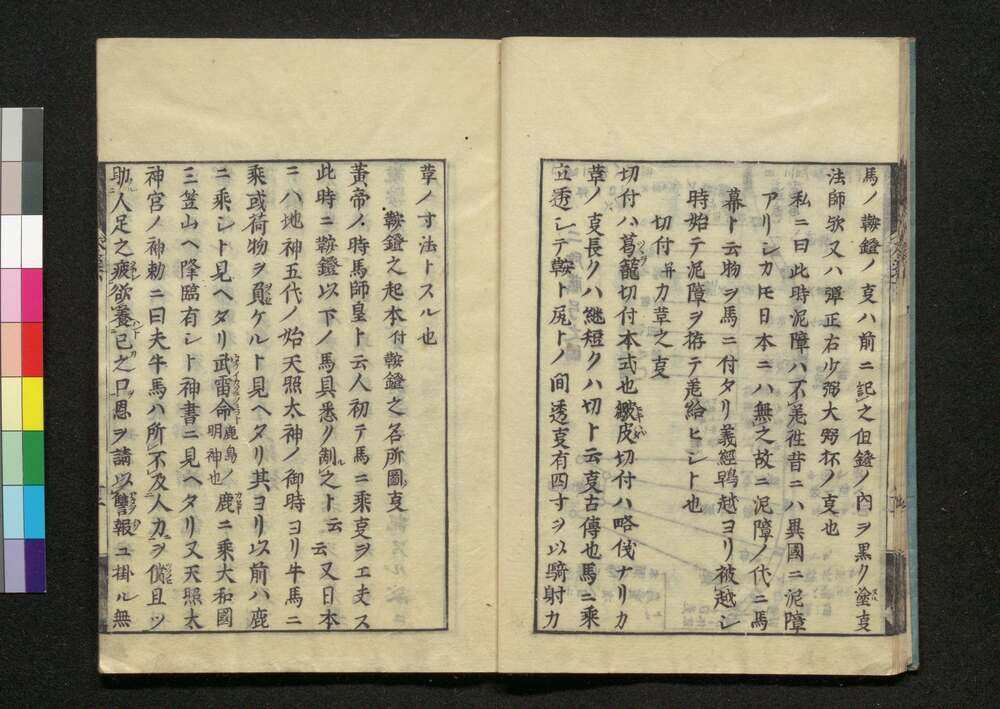 馬ノ鞍鐙ノ叓ハ前ニ記之但鐙ノ內ヲ黒ク塗叓
法師欤又ハ彈正右少弼大弼抔ノ叓也
私ニ曰此時泥障ハ不㐂徃昔ニハ異國ニ泥障
アリシカ𪜈日本ニハ無之故ニ泥障ノ代ニ馬
幕ト云物ヲ馬ニ付タリ義經鵯越ヨリ被越シ
時始テ泥障ヲ拵テ㐂給ヒシト也
切付并カ草之叓
切付ハ葛籠切付本式也皺皮切付ハ略伐ナリカ
草ノ叓長クハ継短クハ切ト云叓古傳也馬ニ乘
立透シテ鞍ト尻トノ間透叓有四寸ヲ以騎射カ
草ノ寸法トスル也
鞍鐙之起本付鞍鐙之名所圖叓
黄帝ノ時馬師皇ト云人初テ馬ニ乘叓ヲエ夫ス
此時ニ鞍鐙以下ノ馬具悉ク制之ト云云又日本
ニハ地神五代ノ始天照太神ノ御時ヨリ牛馬ニ
乘或荷物ヲ負ケルト見ヘタリ其ヨリ以前ハ鹿
ニ乘シト見ヘタリ武雷命鹿島ノ明神也鹿ニ乘大和國
三笠山ヘ降臨有シト神書ニ見ヘタリ又天照太
神宮ノ神勅ニ曰夫牛馬ハ所不及人力ヲ償且ツ
助人足之疲欲養己之口恩ヲ請以讐報ユ掛ル無